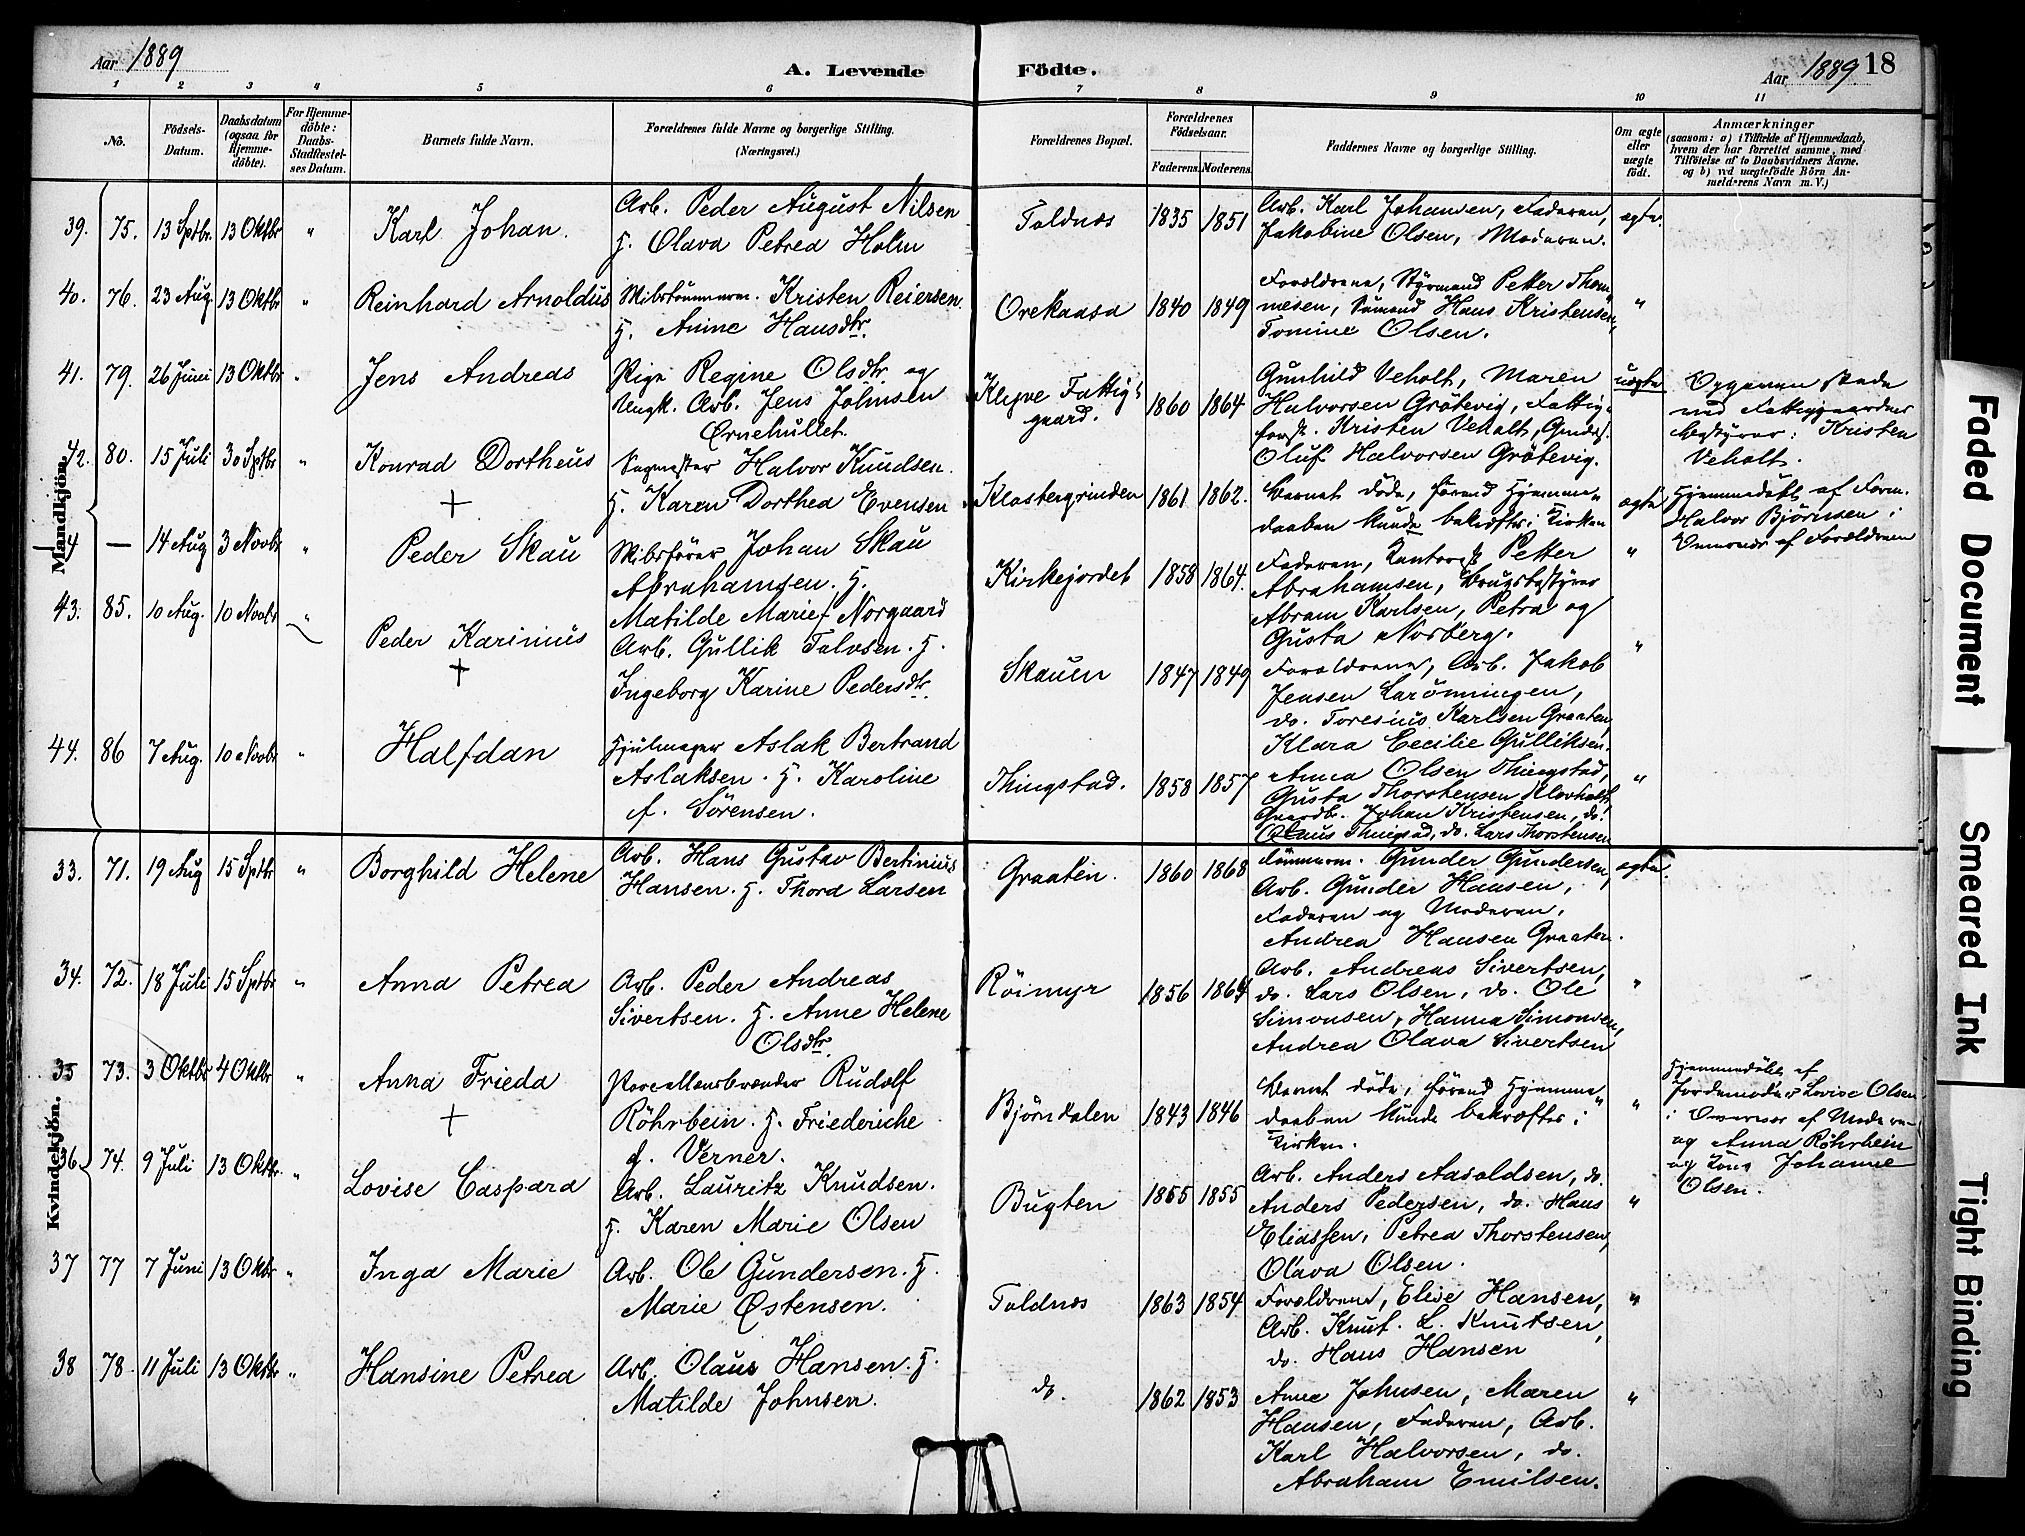 Aar 1889
A. Levende Födte.
Aar 1889. 18
1 2 3 4 5 6 7 8 9 10 11
No.
Födsels-Datum.
Daabsdatum (ogsaa for Hjemme-döbte).
For Hjemme-döbte: Daabs-Stadfæstel-ses Datum.
Barnets fulde Navn.
Forældrenes fulde Navne og borgerlige Stilling.
(Næringsvei.)
Forældrenes Bopæl.
Forældrenes Födselsaar.
Faderens. Moderens.
Faddernes Navne og borgerlige Stilling.
Om ægte eller uægte födt.
Anmærkninger
(saasom: a) i Tilfælde af Hjemmedaab,
hvem der har forrettet samme, med
Tilföielse af to Daabsvidners Navne.
og b) ved uægtefödte Börn An-
melderens Navn m. V.)
Mandkjön.
39. 75. 13 Sptbr. 13 Oktbr " Karl Johan.
Arb. Peder August Nilsen
H. Olava Petrea Holm
Toldnæs 1835 1851
Arb. Karl Johansen, Faderen,
Jakobine Olsen, Moderen.
ægte.
40. 76. 23 Aug. 13 Oktbr " Reinhard Arnoldus
Skibstömmerm. Kristen Reiersen
H. Anine Hansdtr.
Orekaasa 1840 1849
Forældrene, Styrmand Petter Thom
mesen, Sömand Hans Kristensen,
Tomine Olsen.
"
41. 79. 26 Juni 13 Oktbr " Jens Andreas
Pige Regine Olsdtr. og
Ungk. Arb. Jens Johnsen
Ørnehullet.
Klyve Fattig-
gaard. 1860 1864
Gunhild Veholt, Maren
Halvorsen Grötevig, Fattig-
forst. Kristen Veholt, Gaards.
Oluf Halvorsen Grötevig.
uægte
Opgaven skede
ved Fattiggaardens
bestyrer: Kristen
Veholt.
42. 80. 15 Juli 30 Sptbr " Konrad Dortheus
+
Sagmester Halvor Knudsen.
H. Karen Dorthea Evensen
Klostergrinden 1861 1862.
Barnet döde, förend Hjemme-
daaben kunde bekræftes i Kirken
ægte
Hjemmedöbt af Form.
Halvor Björnsen i
Overvær af Forældrene
4 — 14 Aug 3 Novbr " Peder Skau
Skibsförer Johan Skau
Abrahamsen. H.
Matilde Marie f. Norgaard
Kirkejordet 1858 1864.
Faderen, Kontorist Petter
Abrahamsen, Brugsbestyrer
Abram Karlsen, Petra og
Gusta Norberg.
"
43. 85. 10 Aug. 10 Novbr " Peder Karinius
+
Arb. Gullik Talvsen. H.
Ingeborg Karine Pedersdtr.
Skauen 1847 1849
Forældrene, Arb. Jakob
Jensen Larönningen,
do. Toresius Karlsen Graaten,
Klara Cecilie Gulliksen.
"
44. 86 7 Aug. 10 Novbr " Halfdan
Hjulmager Aslak Bertrand
Aslaksen. H. Karoline
f. Sörensen.
Thingstad. 1858 1857
Anna Olsen Thingstad,
Gusta Thorstensen Klovholt,
Gaardbr. Johan Kristensen, do.
Olaus Thingstad, do. Lars Thorstensen
"
Kvindekjön.
33. 71. 19 Aug 15 Sptbr " Borghild Helene
Arb. Hans Gustav Bertinius
Hansen. H. Thora Larsen
Graaten. 1860 1868
Tömmerm. Gunder Gundersen,
Arb. Gunder Hansen,
Faderen og Moderen,
Andrea Hansen Graaten.
ægte.
34. 72. 18 Juli 15 Sptbr " Anna Petrea
Arb. Peder Andreas
Sivertsen. H. Anne Helene
Olsdtr.
Röimyr 1856 1864
Arb. Andreas Sivertsen,
do. Lars Olsen, do. Ole
Simonsen, Hanna Simonsen,
Andrea Olava Sivertsen
"
35 73. 3 Oktbr 4 Oktbr " Anna Frieda
+
Porcellænsbrænder Rudolf
Röhrbein. H. Friederiche
f. Verner.
Björndalen 1843 1846
Barnet döde, förend Hjemme-
daaben kunde bekræftes i
Kirken.
"
Hjemmedöbt af
Jordemoder Lovise Olsen
i Overvær af Moderen
og Anna Röhrbein
og Johanne
Olsen.
36 74. 9 Juli 13 Oktbr. " Lovise Caspara
Arb. Lauritz Knudsen.
H. Karen Marie Olsen
Bugten 1855 1855
Arb. Anders Aasoldsen, do.
Anders Pedersen, do. Hans
Eliassen, Petrea Thorstensen,
Olava Olsen.
"
37 77 7 Juni 13 Oktbr " Inga Marie
Arb. Ole Gundersen. H.
Marie Østensen.
Toldnæs 1863 1854
Forældrene, Elise Hansen,
Arb. Knut L. Knutsen,
do. Hans Hansen
"
38 78. 11 Juli 13 Oktbr " Hansine Petrea
Arb. Olaus Hansen. H.
Matilde Johnsen.
do. 1862 1853
Anne Johnsen, Maren
Hansen, Faderen, Arb.
Karl Halvorsen, do.
Abraham Emilsen.
"
Faded Document
Smeared Ink
Tight Binding